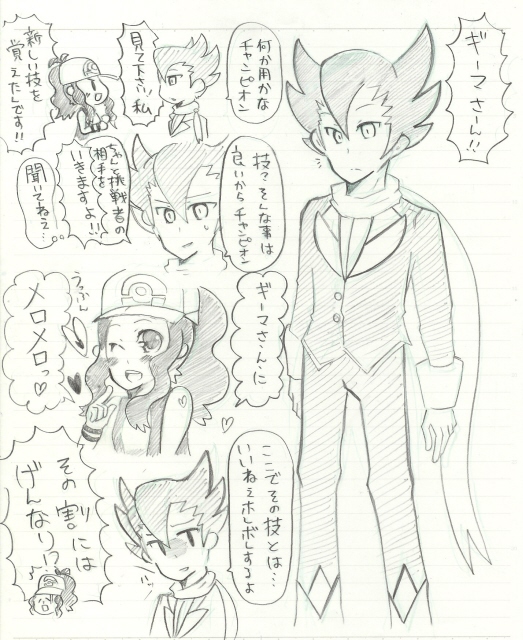 ギーマさん!!
何か用かな
チャンピオン
見て下さい!私
新しい技を
覚えたんです!!
技?そんな事は
良いからチャンピオン
ちゃんと挑戦者の
相手を
いきますよ!!
聞いてねえ…
ギーマさんに
うっふん
メロメロっ♡
ここでその技とは…
いいねえホレボレするよ
その割には
げんなり!?